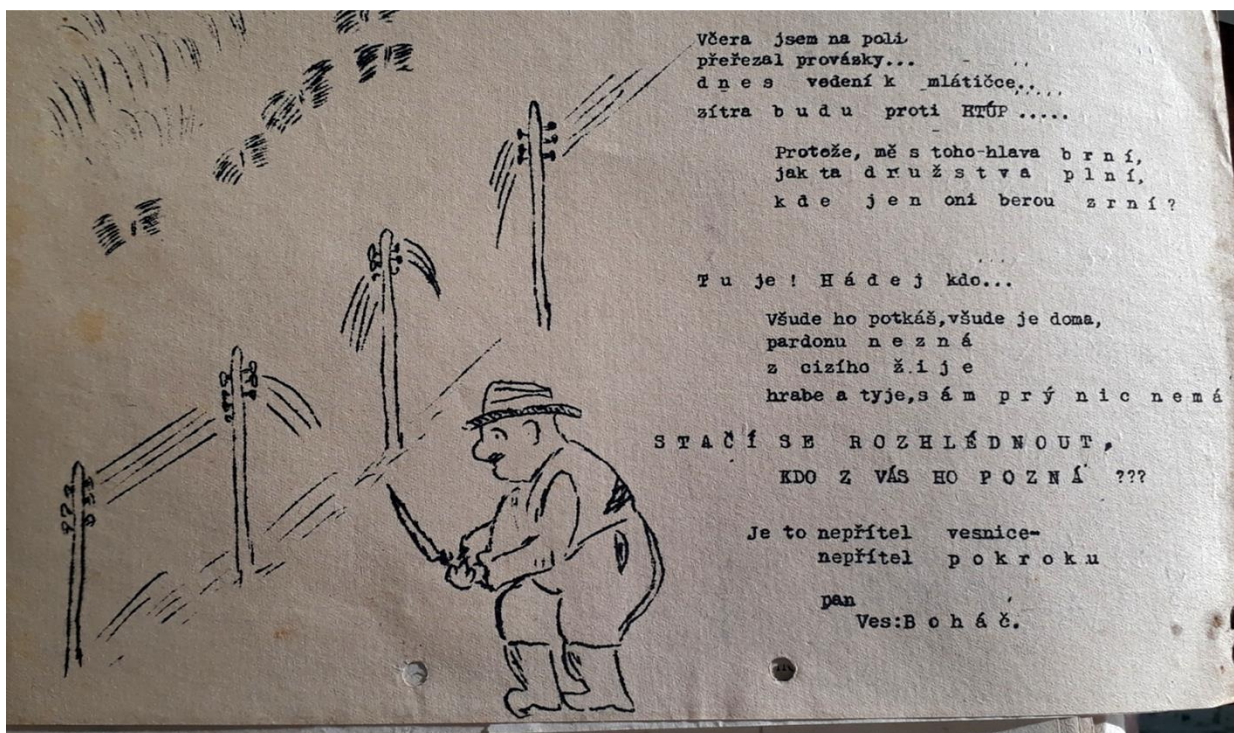 Včera jsem na poli
přeřezal provásky...
d n e s vedení k mlátičce..
zítra b u d u proti HTÚP .....
Protože, mě s toho-hlava b r n í,
jak ta d r u ž s t v a p l n í,
k d e j e n oni berou z r n í ?
T u je ! H á d e j kdo...
Všude ho potkáš,všude je doma,
pardonu n e z n á
z cizího ž i j e
hrabe a tyje,s á m p r ý n i c n e m á
S T A Č Í S E R O Z H L É D N O U T ,
KDO Z VÁS HO P O Z N Á ???
Je to nepřítel vesnice-
nepřítel p o k r o k u
pan
Ves:B o h á č.